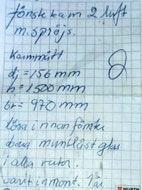 fönsterkarm 2 luft
m. spröjs.
Karmmått
dj = 156 mm
h = 1500 mm
br = 970 mm
lösa innanfönster
munblåst glas
i alla rutor.
2